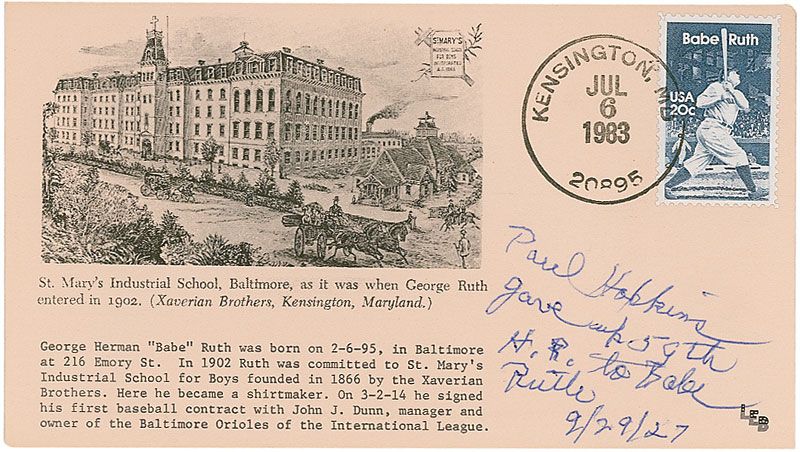 ST. MARY'S
INDUSTRIAL SCHOOL
FOR BOYS
KENSINGTON, MD
JUL
6
1983
20895
Babe Ruth
USA
20c
St. Mary's Industrial School, Baltimore, as it was when George Ruth
entered in 1902. (Xaverian Brothers, Kensington, Maryland.)
George Herman "Babe" Ruth was born on 2-6-95, in Baltimore
at 216 Emory St. In 1902 Ruth was committed to St. Mary's
Industrial School for Boys founded in 1866 by the Xaverian
Brothers. Here he became a shirtmaker. On 3-2-14 he signed
his first baseball contract with John J. Dunn, manager and
owner of the Baltimore Orioles of the International League.
Paul Hopkins
gave up 59th
H.R. to Babe
Ruth
9/29/27
LEB